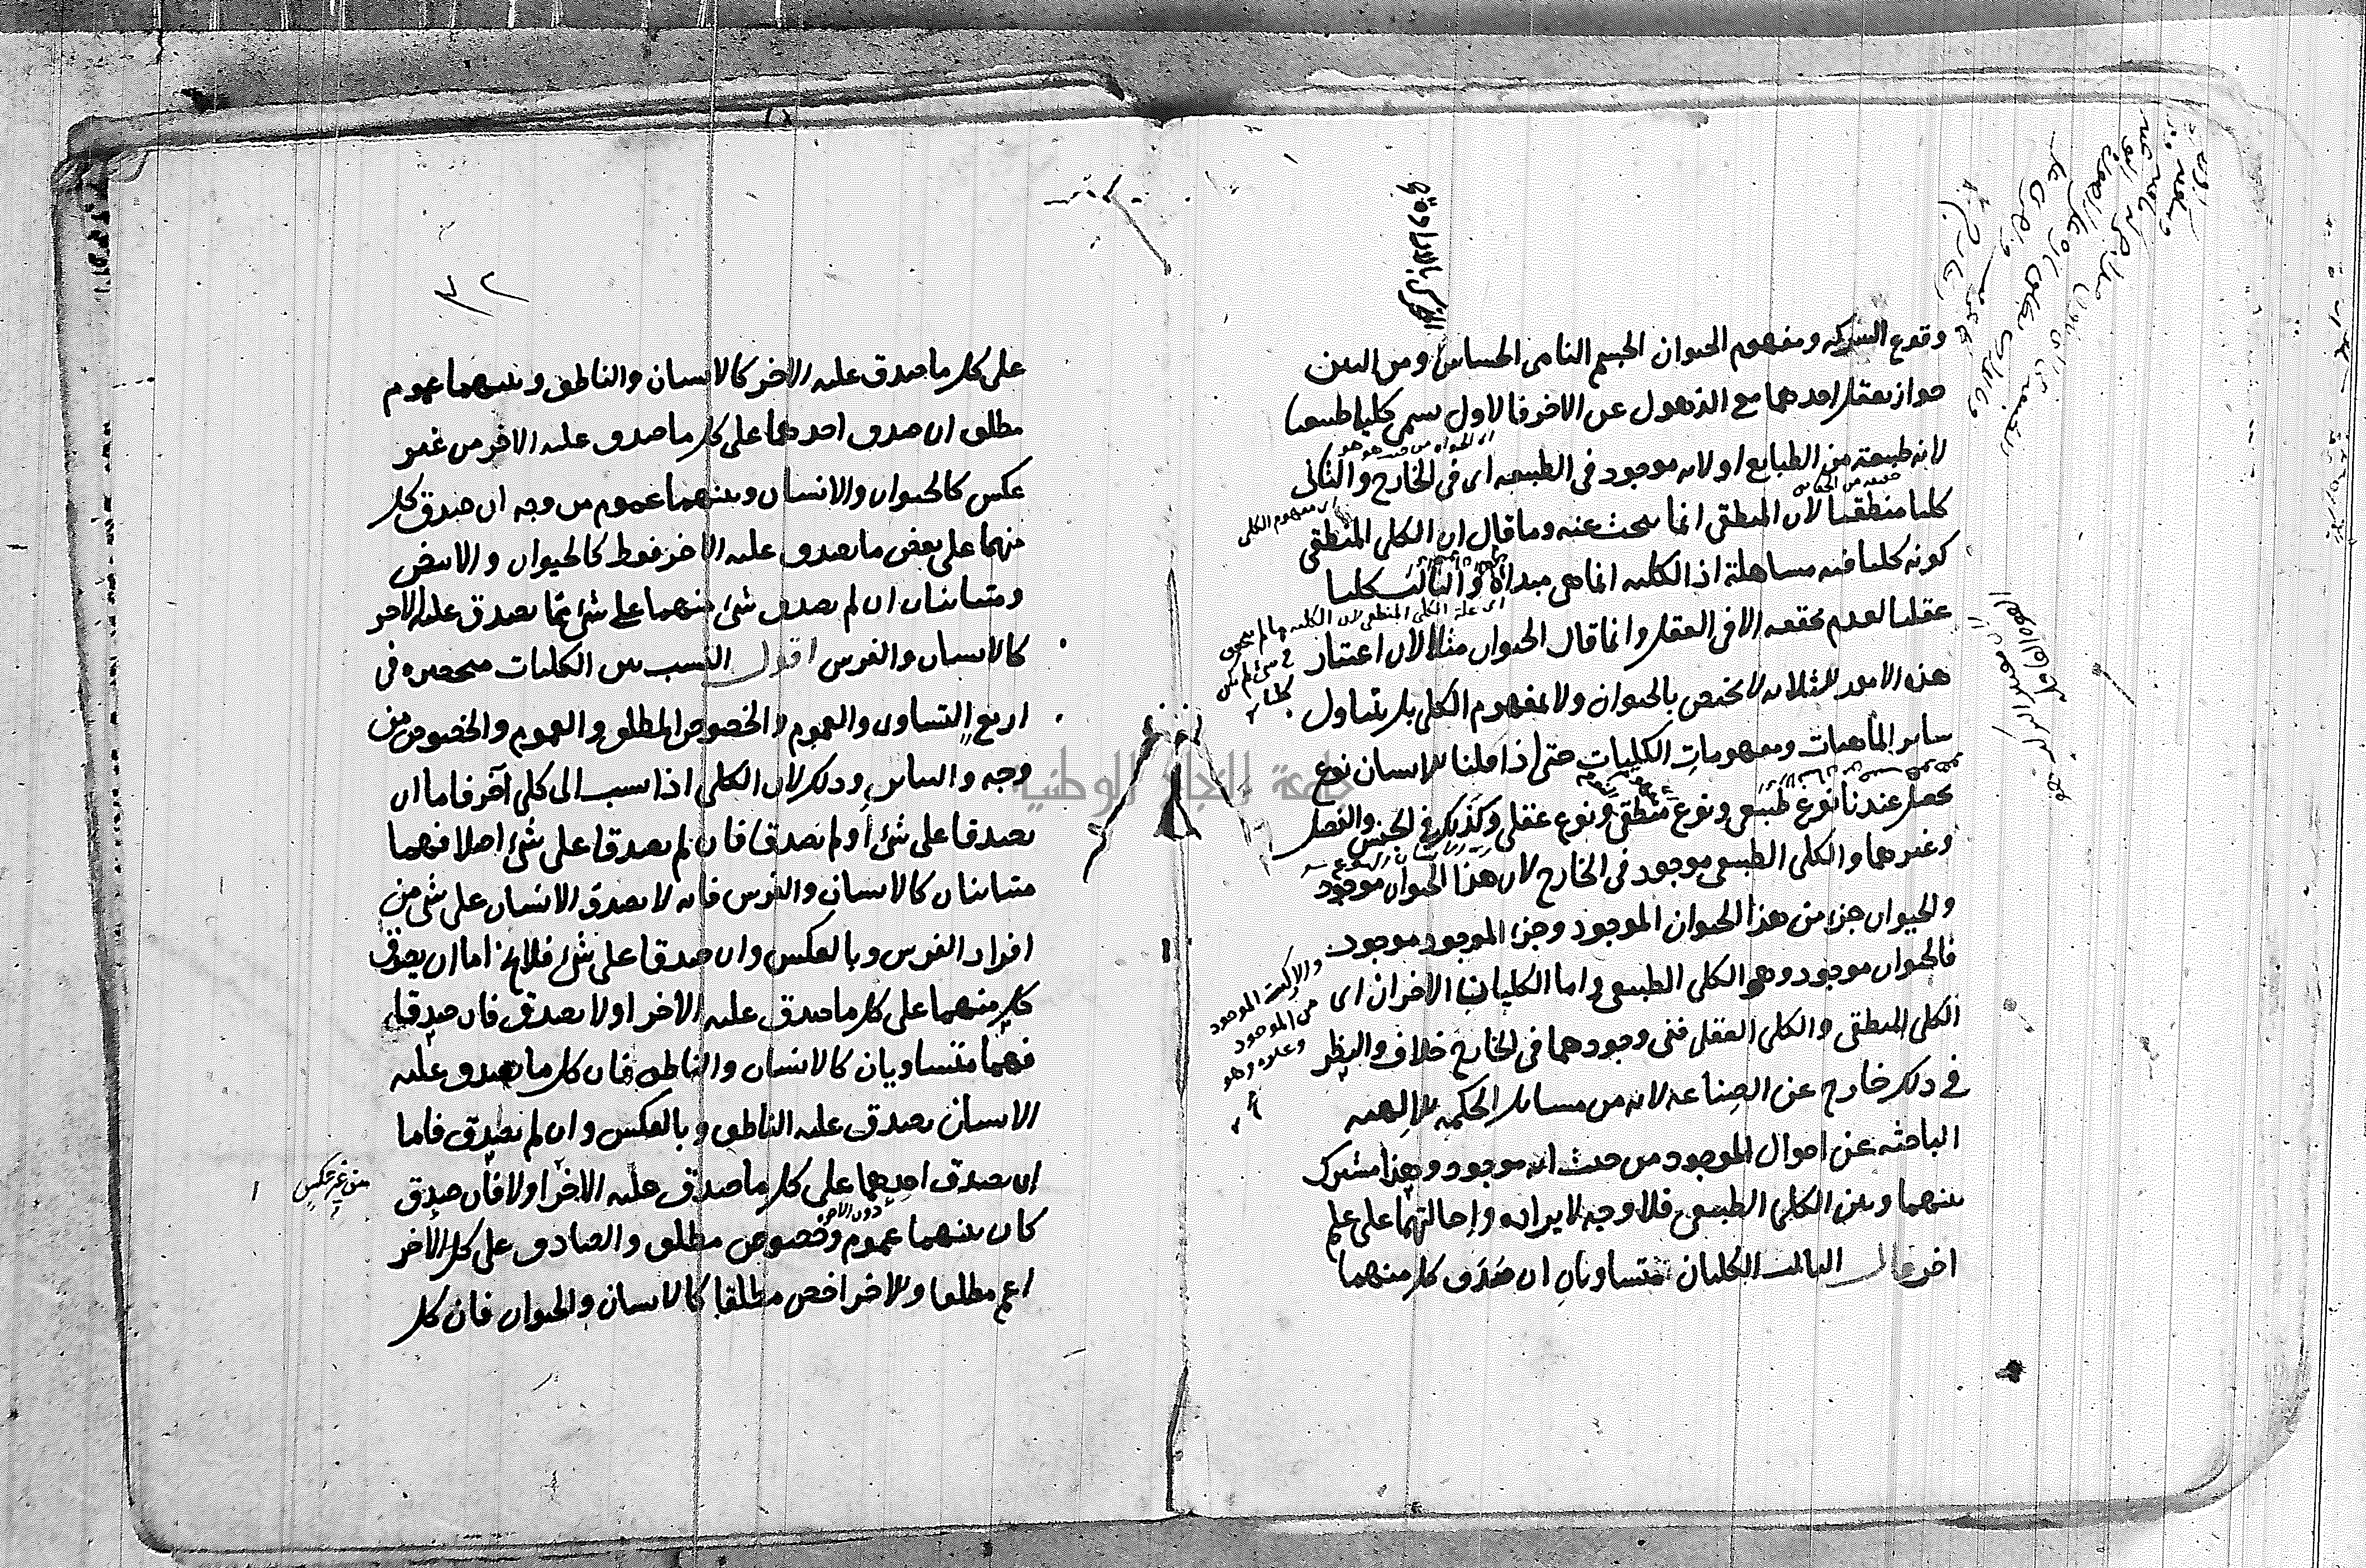 وقوع الشركة ومفهوم الحيوان الجسم النامى الحساس ومن البين
جواز تعقل احدهما مع الذهول عن الاخر فالاول يسمى كليا طبيعيا
لانه طبيعة من الطبايع او لانه موجود فى الطبيعة اى فى الخارج والثانى
كليا منطقيا لان المنطقى انما يبحث عنه وما قال ان الكلى المنطقى
كونه كليا فيه مساهلة اذ الكلية انما هى مبداه والثالث كليا
عقليا لعدم تحققه الا فى العقل وانما قال الحيوان مثلا لان اعتبار
هذه الامور الثلاثة لا يختص بالحيوان ولا بمفهوم الكلى بل يتناول
ساير الماهيات ومفهومات الكليات حتى اذا قلنا الانسان نوع
حصل عندنا نوع طبيعى ونوع منطقى ونوع عقلى وكذلك فى الجنس والفصل
وغيرهما والكلى الطبيعى موجود فى الخارج لان هذا الحيوان موجود
والحيوان جزء من هذا الحيوان الموجود وجزء الموجود موجود
فالحيوان موجود وهو الكلى الطبيعى واما الكليان الاخران اى
الكلى المنطقى والكلى العقلى ففى وجودهما فى الخارج خلاف والنظر
فى ذلك خارج عن الصناعة لانه من مسائل الحكمة الالهية
الباحثة عن احوال الموجود من حيث انه موجود وهذا مشترك
بينهما وبين الكلى الطبيعى فلا وجه لايراده واحالتهما على علم
اخر قال الثالث الكليان متساويان ان صدق كل منهما
اى مفهوم الكلى
دون الاخر
من غير عكس
٣٢
على كل ما صدق عليه الاخر كالانسان والناطق وبينهما عموم
مطلق ان صدق احدهما على كل ما صدق عليه الاخر من غير
عكس كالحيوان والانسان وبينهما عموم من وجه ان صدق كل
منهما على بعض ما يصدق عليه الاخر فقط كالحيوان والابيض
ومتباينان ان لم يصدق شئ منهما على شئ مما يصدق عليه الاخر
كالانسان والفرس اقول النسب بين الكليات منحصرة فى
اربع التساوى والعموم والخصوص المطلق والعموم والخصوص من
وجه والتباين وذلك لان الكلى اذا نسب الى كلى آخر فاما ان
يصدقا على شئ او لم يصدقا فان لم يصدقا على شئ اصلا فهما
متباينان كالانسان والفرس فانه لا يصدق الانسان على شئ من
افراد الفرس وبالعكس وان صدقا على شئ فلا يخ اما ان يصدق
كل منهما على كل ما صدق عليه الاخر او لا يصدق فان صدقا
فهما متساويان كالانسان والناطق فان كل ما يصدق عليه
الانسان يصدق عليه الناطق وبالعكس وان لم يصدق فاما
ان يصدق احدهما على كل ما صدق عليه الاخر او لا فان صدق
كان بينهما عموم وخصوص مطلق والصادق على كل الاخر
اعم مطلقا والاخر اخص مطلقا كالانسان والحيوان فان كل
جامعة النجاح الوطنية